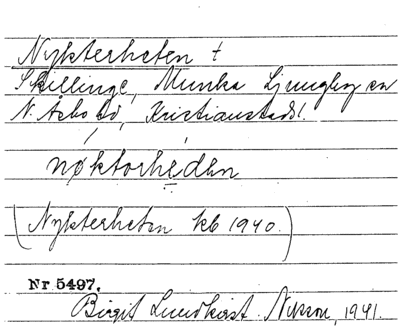 Nykterheten t
Skillinge, Munka Ljungby sn
N. Åsbo hd, Kristianstads l.
nøktorheden
(Nykterheten kb 1940.)
Nr 5497.
Birgit Lundkvist-Nilsson, 1941.